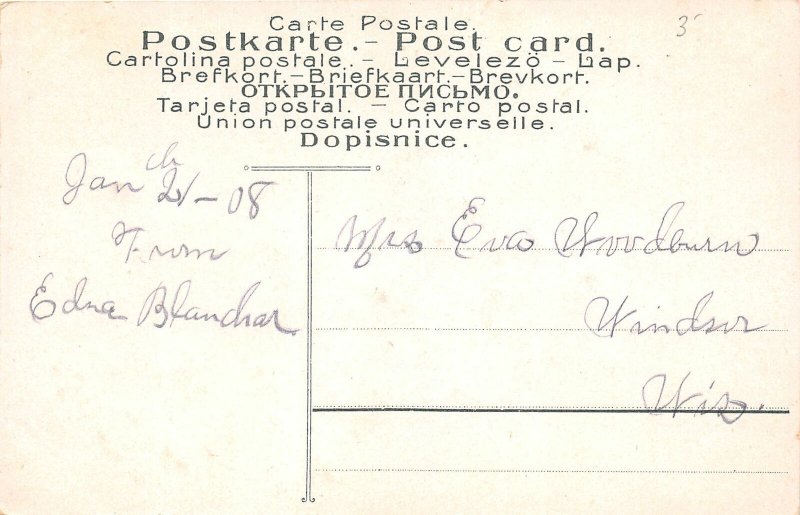 Carte Postale.
Postkarte.- Post card.
Cartolina postale. - Levelező - Lap.
Brefkort.-Briefkaart.-Brevkort.
ОТКРЫТОЕ ПИСЬМО.
Tarjeta postal. - Carto postal.
Union postale universelle.
Dopisnice.
35
Jan 21-08
From
Edna Blanchar
Mrs Eva Woodburn
Windsor
Wis.